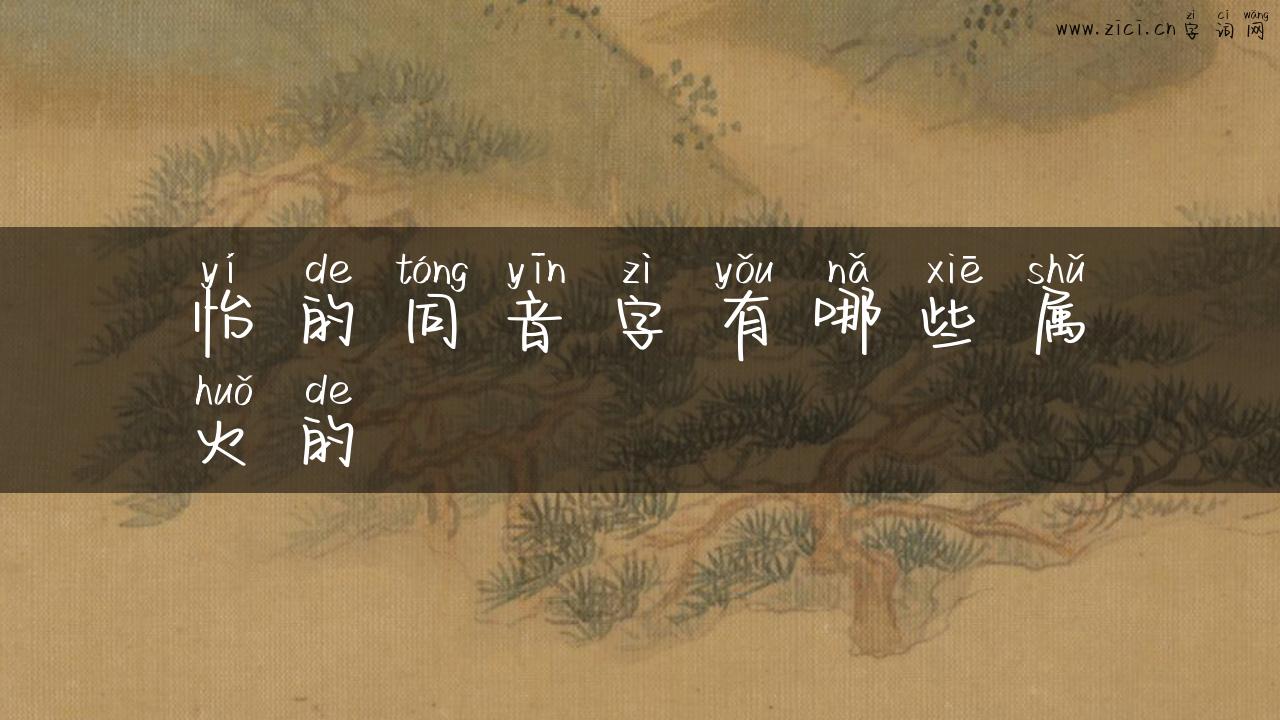 zì cí wǎng
www.zici.cn 字 词 网
yí de tóng yīn zì yǒu nǎ xiē shǔ
怡 的 同 音 字 有 哪 些 属
huǒ de
火 的